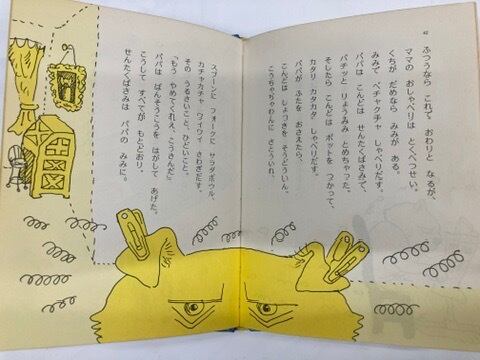 42
ふつうなら これで おわりと なるが、
ママの おしゃべりは とくべつせい。
くちが だめなら みみが ある。
みみで ペチャクチャ しゃべりだす。
パパは こんどは せんたくばさみで、
パチッと りょうみみ とめちゃった。
そしたら こんどは ポットを つかって、
カタリ カタカタ しゃべりだす。
パパが ふたを おさえたら、
こんどは しょっきを そうどういん。
こうちゃぢゃわんに さとういれ、
スプーンと フォークに サラダボウル、
カチャカチャ ワイワイ さわぎだす。
その うるさいこと、ひどいこと。
「もう やめてくれえ、こうさんだ」
パパは ばんそうこうを はがして あげた。
こうして すべてが もとどおり。
せんたくばさみは パパの みみに。